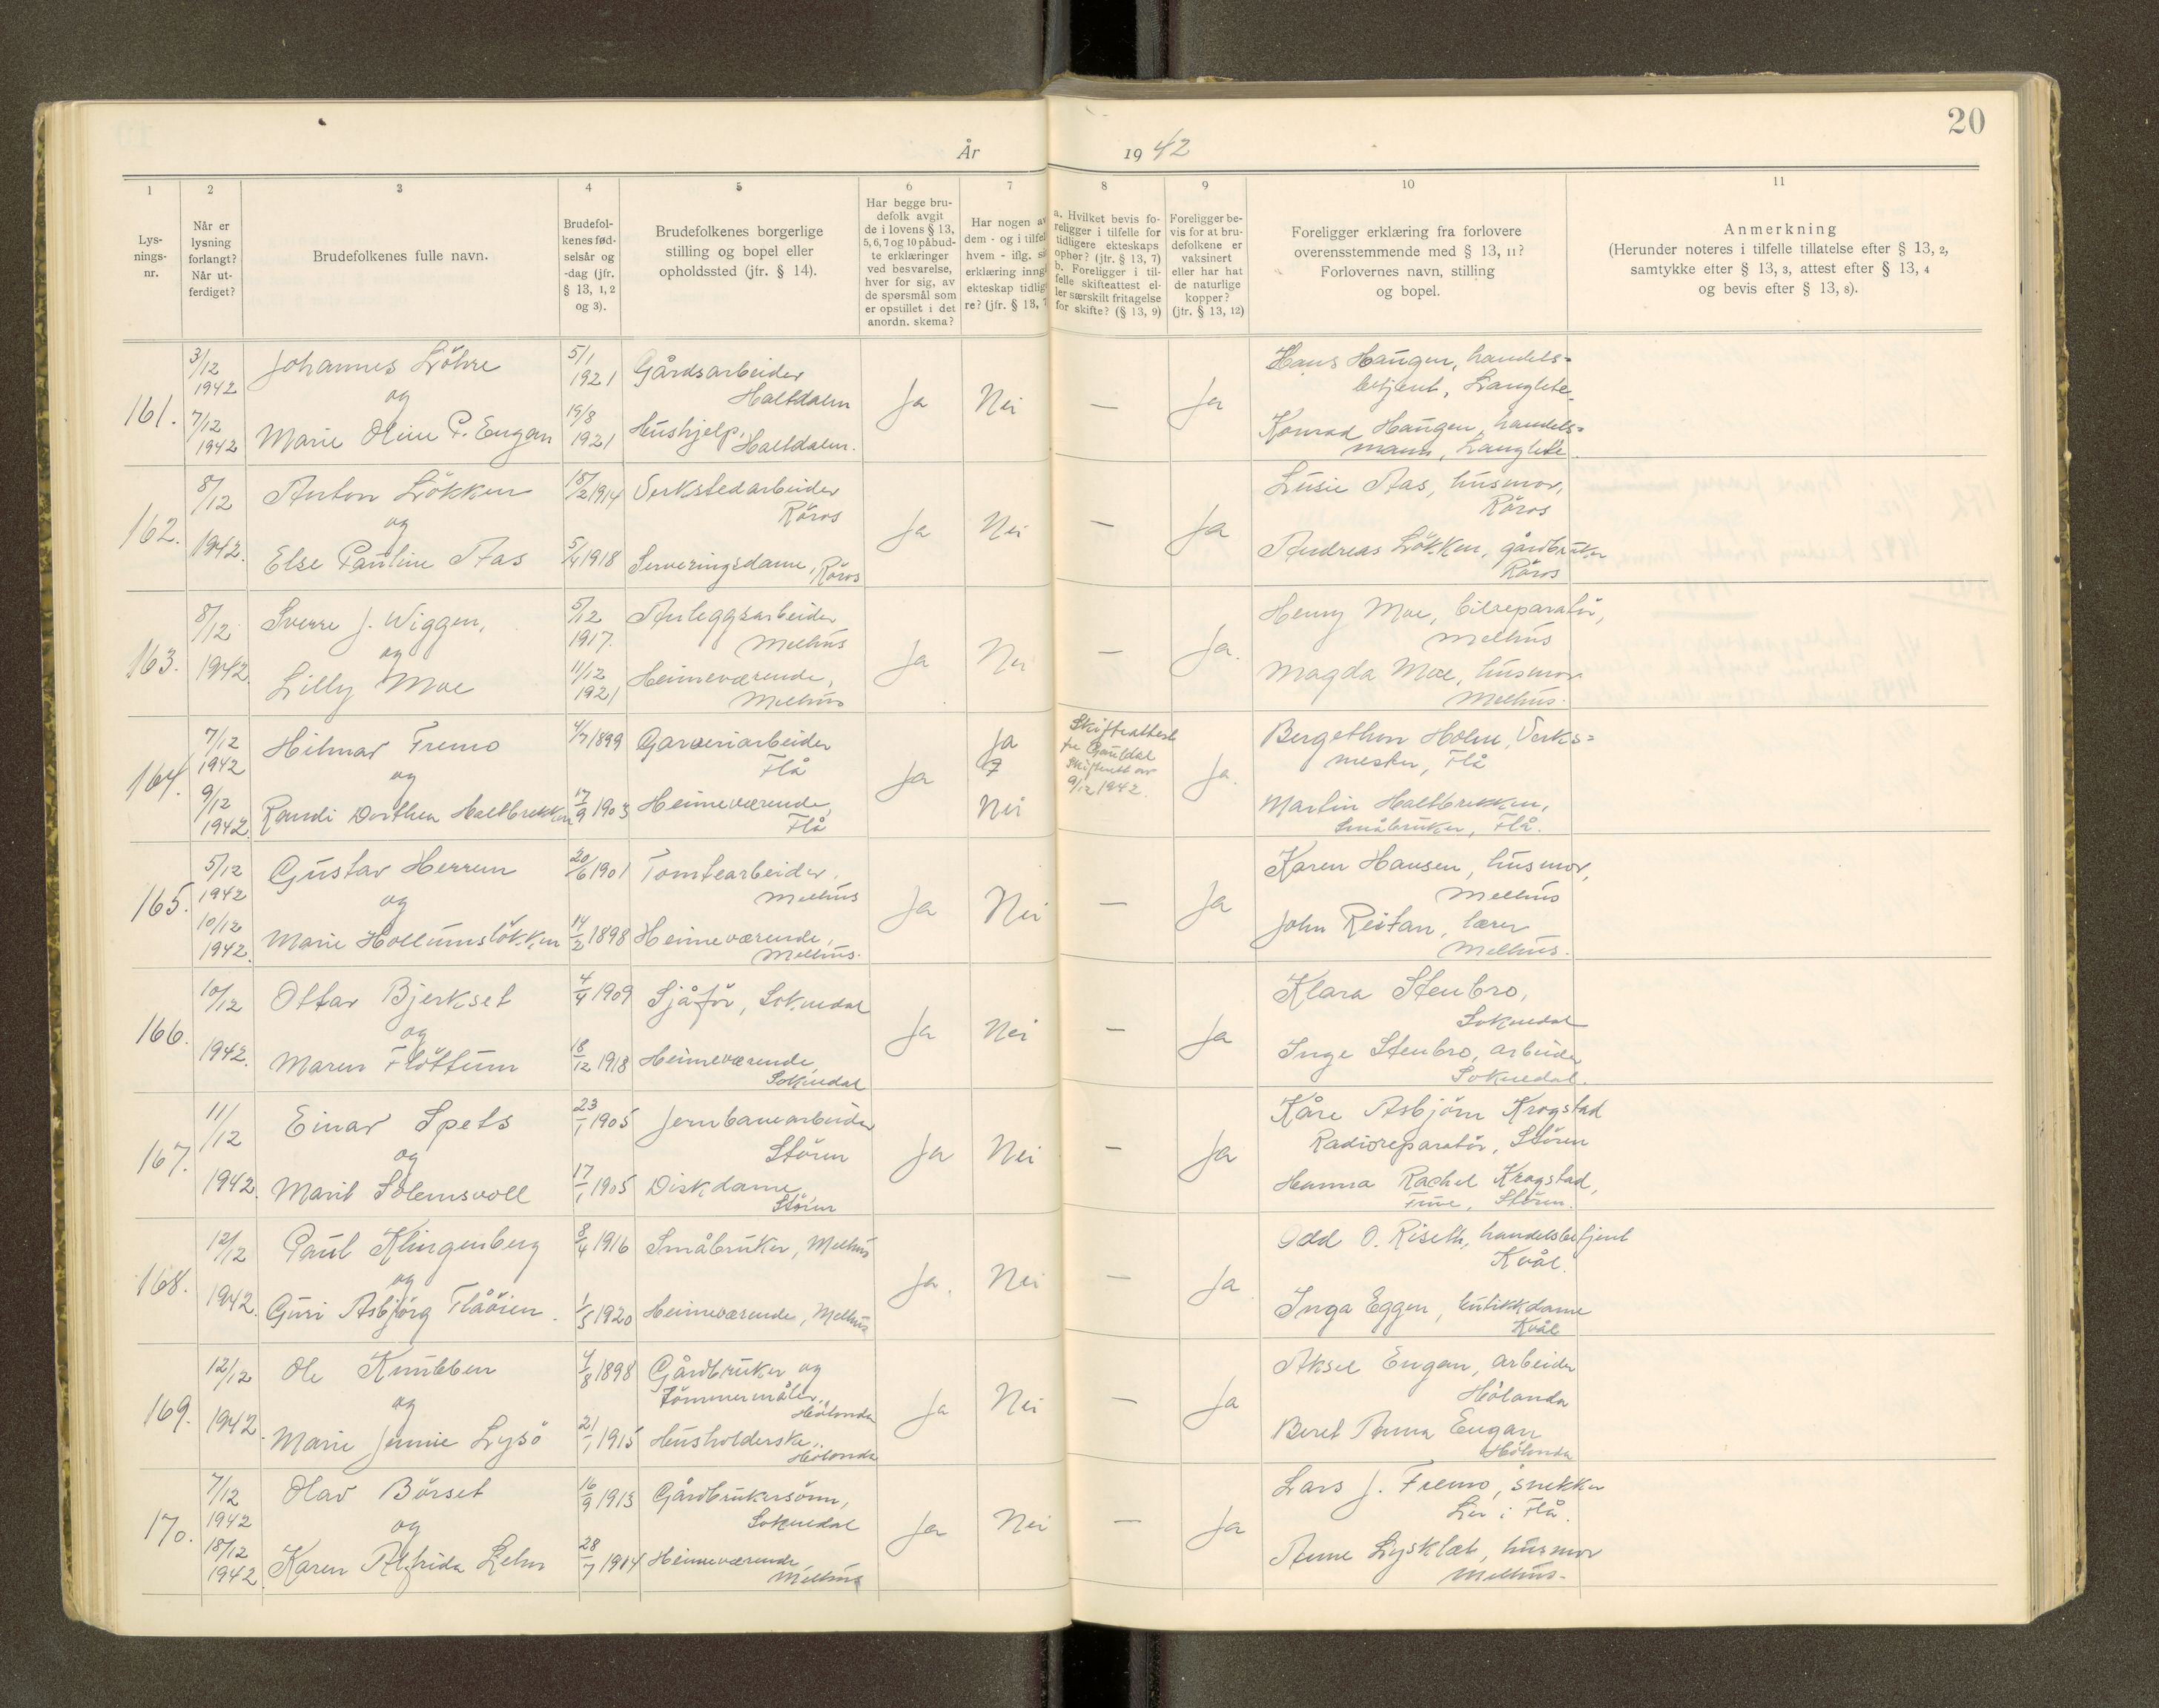 20
År 1942
1 2 3 4 5 6 7 8 9 10 11
Lys-
nings-
nr.
Når er
lysning
forlangt?
Når ut-
ferdiget?
Brudefolkenes fulle navn.
Brudefol-
kenes fød-
selsår og
-dag (jfr.
§ 13, 1, 2
og 3).
Brudefolkenes borgerlige
stilling og bopel eller
opholdssted (jfr. § 14).
Har begge bru-
defolk avgit
de i lovens § 13,
5, 6, 7 og 10 påbud-
te erklæringer
ved besvarelse,
hver for sig, av
de spørsmål som
er opstillet i det
anordn. skema?
Har nogen av
dem - og i tilfel
hvem - iflg. s
erklæring inng
ekteskap tidlig
re? (jfr. § 13, 7
a. Hvilket bevis fo-
religger i tilfelle for
tidligere ekteskaps
ophør? (jfr. § 13, 7)
b. Foreligger i til-
felle skifteattest el-
ler særskilt fritagelse
for skifte? (§ 13, 9)
Foreligger be-
vis for at bru-
defolkene er
vaksinert
eller har hat
de naturlige
kopper?
(jfr. § 13, 12)
Foreligger erklæring fra forlovere
overensstemmende med § 13, 11?
Forlovernes navn, stilling
og bopel.
Anmerkning
(Herunder noteres i tilfelle tillatelse efter § 13, 2,
samtykke efter § 13, 3, attest efter § 13, 4
og bevis efter § 13, 8).
161.
3/12
1942
7/12
1942
Johannes Löhre
og
Marie Oline P. Engan
5/1
1921
19/8
1921
Gårdsarbeider
Haltdalen
Hushjelp,
Haltdalen.
Ja
Nei
—
Ja
Hans Haugen, handels=
betjent, Langlete.
Konrad Haugen, handels=
mann, Langlete.
162.
8/12
1942.
Anton Lökken
og
Else Pauline Aas
18/2 1914
5/4 1918
Verkstedarbeider
Röros
Serveringsdame, Röros
Ja
Nei
—
Ja
Lusie Aas, husmor,
Röros
Andreas Lökken, gårdbruker
Röros
163.
8/12
1942.
Sverre J. Wiggen,
og
Lilly Moe
5/12
1917.
11/12
1921
Anleggsarbeider
Melhus
Heimeværende,
Melhus
Ja
Nei
—
Ja.
Henry Moe, bilreparatör,
Melhus
Magda Moe, husmor
Melhus.
164.
7/12
1942
9/12
1942
Hilmar Fremo
og
Randi Dorthea Haltbrekken
4/7 1899
17/9 1903
Garveriarbeider
Flå
Heimeværende,
Flå
Ja
Ja
Nei
Skifteattest
fra Gauldal
skifterett av
9/12 1942.
Ja.
Bergethon Holm, Verks=
mester, Flå
Martin Haltbrekken,
Småbruker, Flå.
165.
5/12
1942
10/12
1942
Gustav Herrem
og
Marie Hollumslökken
20/6 1901
14/2 1898
Tomtearbeider,
Melhus
Heimeværende,
Melhus.
Ja
Nei
—
Ja
Karen Hansen, husmor,
Melhus
John Reitan, lærer
Melhus.
166.
10/12
1942.
Ottar Bjerkset
og
Maren Flöttum
4/4 1909
18/12 1918
Sjåför, Soknedal
Heimeværende,
Soknedal
Ja
Nei
—
Ja
Klara Stenbro,
Soknedal
Inge Stenbro, arbeider
Soknedal.
167.
11/12
1942.
Einar Spets
og
Marit Solemsvoll
23/1 1905
17/1 1905
Jernbanearbeider
Stören
Diskdame,
Stören
Ja
Nei
—
Ja
Kåre Asbjörn Krogstad
Radioreparatör, Stören
Hanna Rachel Krogstad,
Frue, Stören.
168.
12/12
1942.
Paul Klingenberg
og
Guri Asbjörg Flåöien.
8/4 1916
1/5 1920
Småbruker, Melhus
Heimeværende, Melhus
Ja.
Nei
—
Ja.
Odd O. Riseth, handelsbetjent
Kvål.
Inga Eggen, butikkdame
Kvål
169.
12/12
1942.
Ole Knubben
og
Marie Jennie Lysö
4/8 1898
21/1 1915
Gårdbruker og
Tömmermåler,
Hölonda
Husholderske,
Hölonda
Ja
Nei
—
Ja
Aksel Engan, arbeider
Hölonda
Beret Anna Engan
Hölonda
170.
7/12
1942
18/12
1942.
Olav Börset
og
Karen Alfrida Lehn
16/9 1913
28/7 1914
Gårdbrukersönn,
Soknedal
Heimeværende,
Melhus
Ja
Nei
—
Ja
Lars J. Fremo, snekker
Ler i Flå.
Anne Lysklæt, husmor
Melhus.